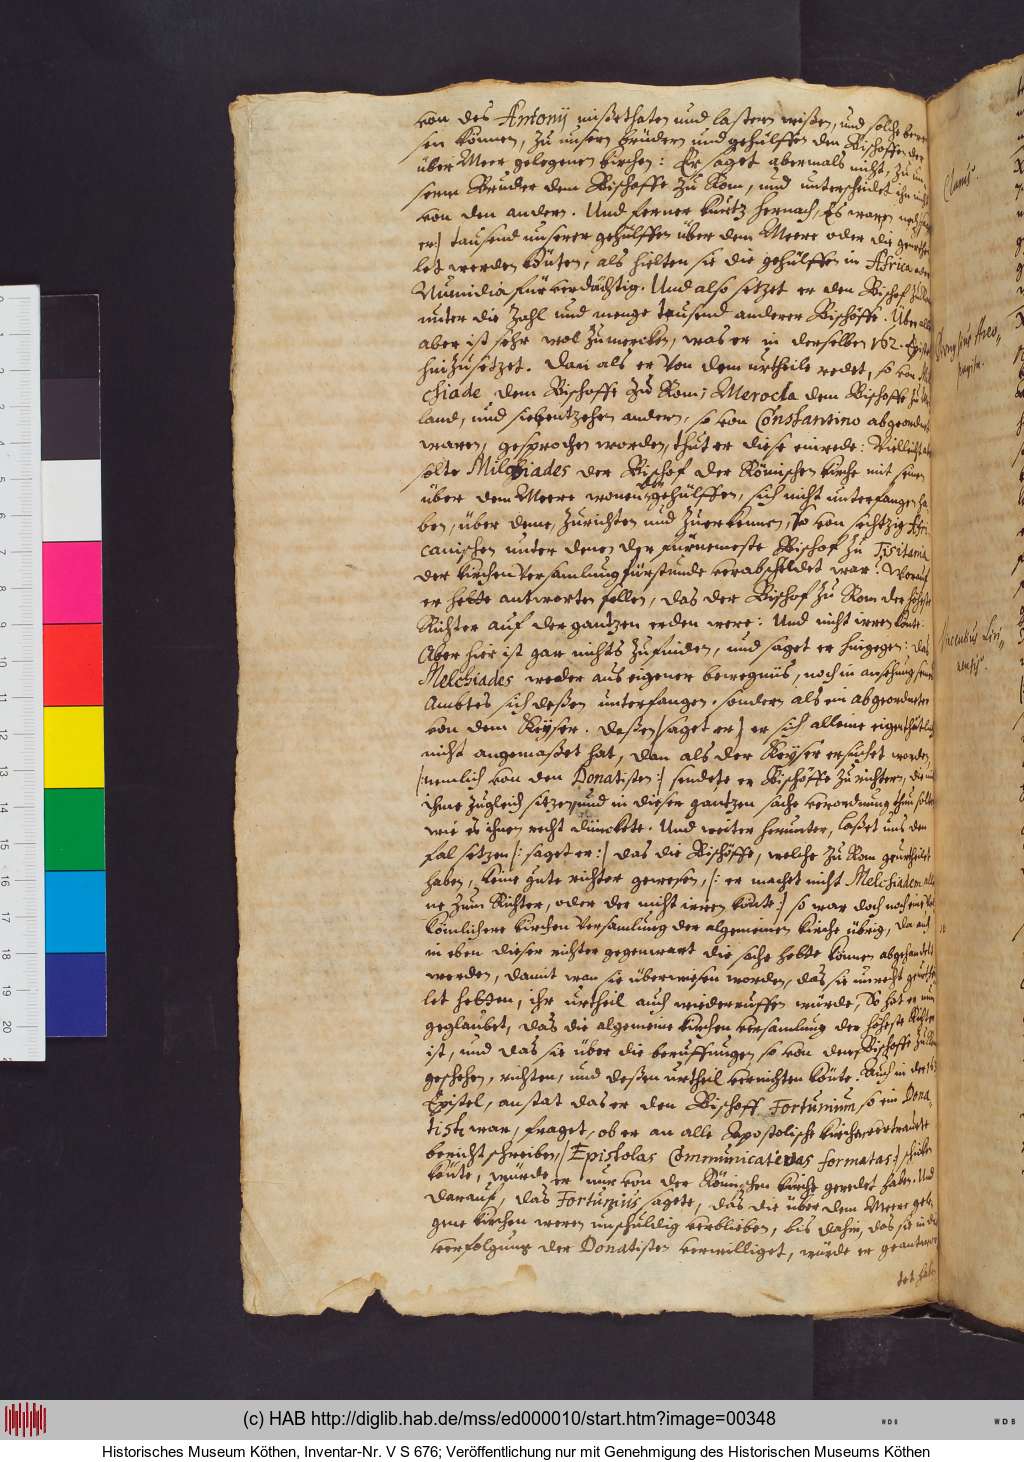 von des Antonij mißethaten und lastern wißen, und solche bewei
sen können, zu unsern brüdern und gehülffen den Bischoffen der
über Meer gelegenen kirchen: Er saget abermals nicht, zu un
serm Bruder dem Bischoffe zu Rom, und unterscheidet ihn nicht
von den andern. Und ferner kurtz hernach, Es waren
er) tausend unserer gehülffen über dem Meere oder die
let werden köuten, als hielten sie die gehülffen in Africa oder
Numidia für verdächtig. Und also setzet er den Bischof zu
unter die Zahl und menge tausend anderer Bischöffe. Über
aber ist sehr wol zumercken, was er in derselben 162. Epistel
hinzusetzet. Dan als er von dem urtheile redet, so von Mil
chiade dem Bischoffe zu Rom, Merocla dem Bischoffe zu
land, und siebentzehen andern, so von Constantino abgeordnet
waren, gesprochen worden, thut er diese einrede: Villeicht
solte Milchiades der Bischof der Römischen kirche mit seinen
über dem Meere wonenden gehülffen, sich nicht unterfangen ha
ben, über deme, zurichten und zuerkennen, so von sechtzig Afri
canischen unter denen der fürnemeste Bischof zu Tisitania
der kirchen Versamlung fürstunde verabscheidet war. Worauf
er hette antworten sollen, das der Bischof zu Rom der höchste
Richter auf der gantzen erden were: Und nicht irren könte.
Aber hier ist gar nichts zufinden, und saget er hingegen: das
Melchiades weder aus eigener bewegnüs, noch in ansehung seines
Ambtes sich deßen unterfangen, sondern als ein abgeordneter
von dem Keyser. Deßen (saget er) er sich alleine eigenthätlich
nicht angemaßet hat, dan als der Keyser ersuchet worden,
(nemlich von den Donatisten:) sendete er Bischöffe zu richtern, die mit
ihme zugleich sitzen, und in dieser gantzen sache verordnung thun solten
wie es ihnen recht dünckete. Und weiter herunter, laßet uns den
fal setzen (: saget er:) das die Bischöffe, welche zu Rom geurtheilet
haben, keine gute richter gewesen, (: er machet nicht Melchiadem allei
ne zum Richter, oder der nicht irren könte:) so war doch noch eine
kömlichere kirchen Versamlung der algemeinen kirche übrig, da auch
in eben dieser richter gegenwart die sache hette können abgehandelt
werden, damit wan sie überwiesen worden, das sie unrecht geurthei
let hetten, ihr urtheil auch wiederruffen würde, So hat er nun
geglaubet, das die algemeine kirchen versamlung der höheste Richter
ist, und das sie über die beruffungen so von dem Bischoffe zu Rom
geschehen, richten, und deßen urtheil vernichten könte. Auch in der 163
Epistel, anstat das er den Bischoff Fortunium so ein Dona-
tist war, fraget, ob er an alle Apostolische kirchen vertrauete
bericht schreiben (Epistolas Communicativas formatas:) schicken
köute, würde er nur von der Römischen kirche geredet haben. Und
darauf, das Fortunius sagete, das die über dem Meere gele
gene kirchen weren unschuldig verblieben, bis dahin, das sie in die
verfolgung der Donatisten verwilliget, würde er geantwor
tet haben
Dionysius Areo-
pagita.
Vincentius Liri-
nensis.
(c) HAB http://diglib.hab.de/mss/ed000010/start.htm?image=00348
Historisches Museum Köthen, Inventar-Nr. V S 676; Veröffentlichung nur mit Genehmigung des Historischen Museums Köthen